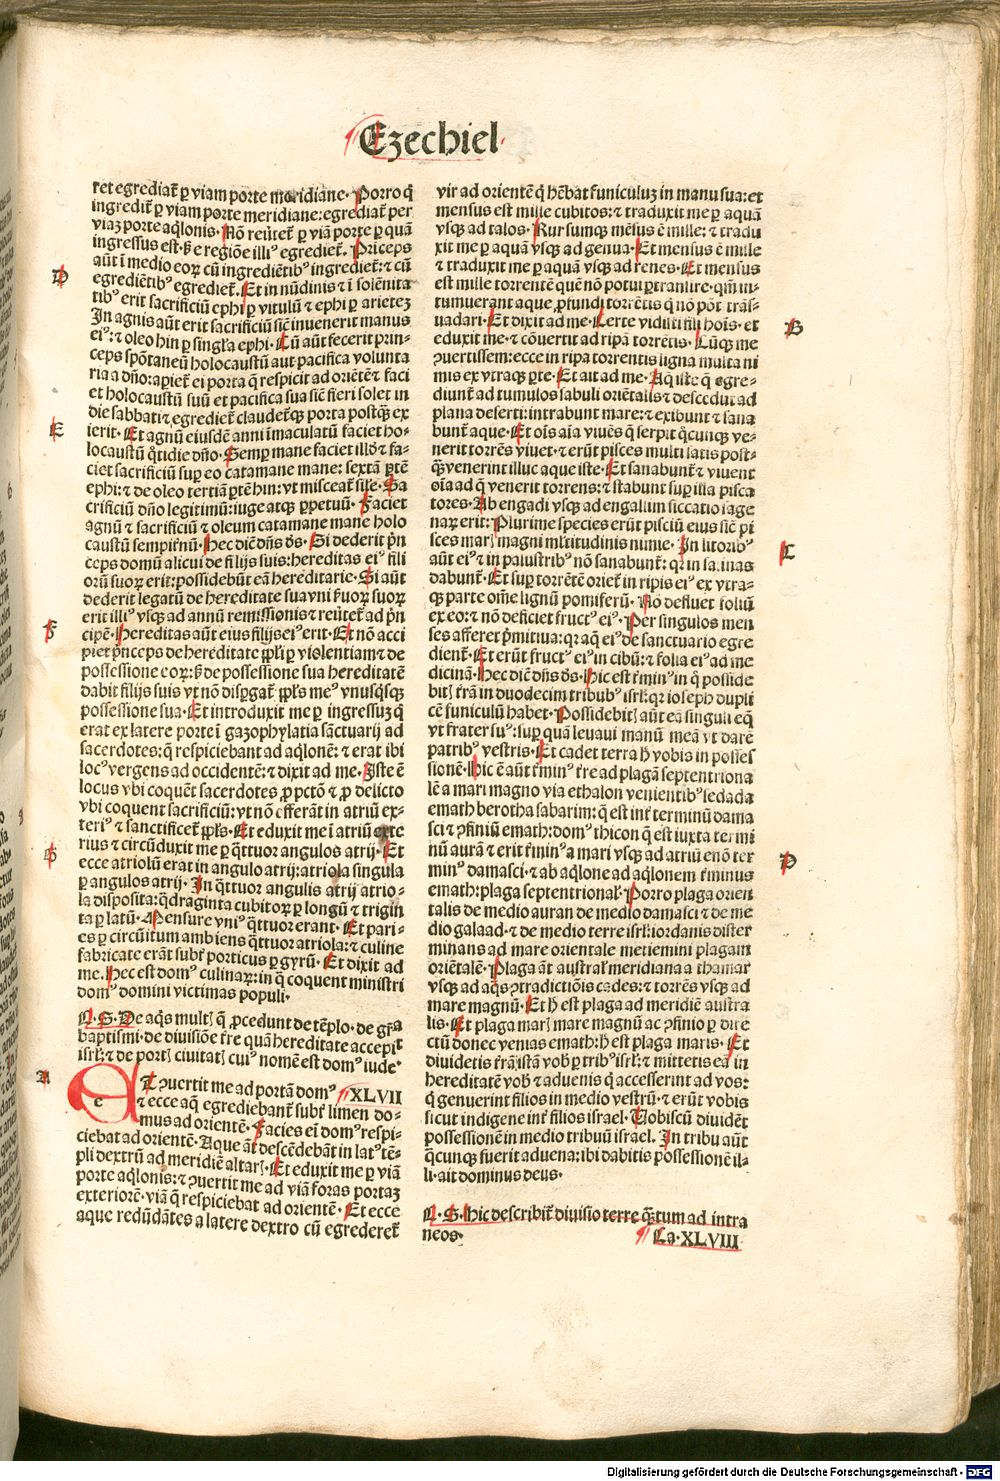 Ezechiel
ret egrediat᷑ ꝑ viam porte meridiane. Porro q̄
ingredit᷑ ꝑ viam porte meridiane: egrediat᷑ per
viaꝫ porte aq̄lonis. Nō reuītet᷑ ꝑ viā porte ꝑ quā
ingressus est. ß e regiōe illiꝰ egrediet᷑. Pr̄iceps
aūt ī medio eoꝝ cū ingrediētibꝰ ingrediet᷑: ⁊ cū
D
egrediētibꝰ egrediet᷑. Et in nūdinis ⁊ ī solēnita
tibꝰ erit sacrificiū ephi ꝑ vitulū ⁊ ephi ꝑ arieteꝫ
In agnis aūt erit sacrificiū sic̄ inuenerit manus
eiꝰ: ⁊ oleo hin ꝑ singl̄a ephi. Cū aūt fecerit prin-
ceps spōtaneū holocaustū aut pacifica volunta
ria a dn̄o: aꝑiet᷑ ei porta q̄ respicit ad oriētē ⁊ faci
et holocaustū suū et pacifica sua sic̄ fieri solet in
die sabbati: ⁊ egrediet᷑ claudet᷑qꝫ porta postq̄ꝫ ex
E
ierit. Et agnū eiusdē anni īmaculatū faciet ho-
locaustū q̄tidie dn̄o. Semꝑ mane faciet illō ⁊ fa-
ciet sacrificiū suꝑ eo catamane mane: sextā ꝑtē
ephi: ⁊ de oleo tertiā ꝑtē hin: vt misceat᷑ sil̄e. Sa
crificiū dn̄o legitimū: iuge atqꝫ ꝑpetuū. Faciet
agnū ⁊ sacrificiū ⁊ oleum catamane mane holo
caustū sempit᷑nū. Hec dic̄ dn̄s ds̄. Si dederit p̄n
ceps domū alicui de filijs suis: hereditas eiꝰ fili
orū suoꝝ erit: possidebūt eā hereditarie. Si aūt
dederit legatū de hereditate sua vni ẜuoꝝ suoꝝ
erit illiꝰ vsqꝫ ad annū remissionis ⁊ reūtet᷑ ad p̄n
F
cipē. Hereditas aūt eius filijs eiꝰ erit. Et nō acci
piet p̄nceps de hereditate ppl̄i ꝑ violentiam ⁊ de
possessione eoꝝ: ß de possessione sua hereditatē
dabit filijs suis vt nō disꝑgat᷑ ppl̄s meꝰ vnusq̄sqꝫ
possessione sua. Et introduxit me ꝑ ingressuꝫ q̄
erat ex latere porte ī gazophylatia sāctuarij ad
sacerdotes: q̄ respiciebant ad aq̄lonē: ⁊ erat ibi
locꝰ vergens ad occidentē: ⁊ dixit ad me. Iste ē
locus vbi coquēt sacerdotes ꝓ pctō ⁊ ꝓ delicto
vbi coquent sacrificiū: vt nō efferāt in atriū ex-
teriꝰ ⁊ sanctificet᷑ ppl̄s. Et eduxit me ī atriū exte
G
rius ⁊ circūduxit me ꝑ q̄ttuor angulos atrij. Et
ecce atriolū erat in angulo atrij: atriola singula
ꝑ angulos atrij. In q̄ttuor angulis atrij atrio-
la disposita: q̄draginta cubitoꝝ ꝑ longū ⁊ trigin
ta ꝑ latū. Mensure vniꝰ q̄ttuor erant. Et pari-
es ꝑ circūitum ambiens q̄ttuor atriola: ⁊ culine
fabricate erāt subt᷑ porticus ꝑ gyrū. Et dixit ad
me. Hec est domꝰ culinaꝝ: in q̄ coquent ministri
domꝰ domini victimas populi.
C. S. De aq̄s multꝭ q̄ ꝓcedunt de tēplo. de gr̄a
baptismi. de diuisiōe t᷑re quā hereditate accepit
isrl̄: ⁊ de portꝭ ciuitatꝭ cuiꝰ nomē est domꝰ iude.
A
ET ꝯuertit me ad portā domꝰ XLVII
⁊ ecce aq̄ egrediebant᷑ subt᷑ limen do-
mus ad orientē. Facies ei᷑ domꝰ respi-
ciebat ad orientē. Aque āt descēdebāt in latꝰ tē-
pli dextrū ad meridiē altarꝭ. Et eduxit me ꝑ viā
porte aq̄lonis: ⁊ ꝯuertit me ad viā foras portaꝫ
exteriorē. viā q̄ respiciebat ad orientē. Et ecce
aque redūdātes a latere dextro cū egrederet᷑
vir ad orientē q̄ hēbat funiculuꝫ in manu sua: et
mensus est mille cubitos: ⁊ traduxit me ꝑ aquā
vsqꝫ ad talos. Rursumqꝫ mēsus ē mille: ⁊ tradu
xit me ꝑ aquā vsqꝫ ad genua. Et mensus ē mille
⁊ traduxit me ꝑ aquā vsqꝫ ad renes. Et mensus
est mille torrentē quē nō potui ꝑtransire. qm̄ in-
tumuerant aque ꝓfundi torrētis q̄ nō pōt trās-
B
uadari. Et dixit ad me. Certe vidisti fili hoīs. et
eduxit me. ⁊ cōuertit ad ripā torrētis. Cūqꝫ me
ꝯuertissem: ecce in ripa torrentis ligna multa ni
mis ex vtraqꝫ ꝑte. Et ait ad me. Aq̄ iste q̄ egre-
diunt᷑ ad tumulos sabuli orientalis ⁊ descēdūt ad
plana deserti: intrabunt mare: ⁊ exibunt ⁊ sana
bunt᷑ aque. Et oīs aīa viuēs q̄ serpit q̄cunqꝫ ve-
nerit torrēs viuet. ⁊ erūt pisces multi satis post-
q̄ꝫ venerint illuc aque iste. Et sanabunt᷑ ⁊ viuent
oīa ad q̄ venerit torrens: ⁊ stabunt suꝑ illa pisca
tores. Ab engadi vsqꝫ ad engallim siccatio sage
naꝝ erit: Plurime species erūt pisciū eius sic̄ pi
sces marꝭ magni ml̄titudinis nimie. In litoribꝰ
C
aūt eiꝰ ⁊ in palustribꝰ nō sanabunt᷑: qꝛ in salinas
dabunt᷑. Et suꝑ torrētē oriet᷑ in ripis eiꝰ ex vtra-
qꝫ parte om̄e lignū pomiferū. Nō defluet foliū
ex eo: ⁊ nō deficiet fructꝰ eiꝰ. Per singulos men
ses afferet p̄mitiua: qꝛ aq̄ eiꝰ de sanctuario egre
dient᷑. Et erūt fructꝰ eiꝰ in cibū: ⁊ folia eiꝰ ad me
dicinā. Hec dic̄ dn̄s ds̄. Hic est t᷑minꝰ in q̄ posside
bitꝭ t᷑rā in duodecim tribubꝰ isrl̄: qꝛ ioseph dupli
cē funiculū habet. Possidebitꝭ aūt eā singuli eq̄
vt frater suꝰ: suꝑ quā leuaui manū meā vt darē
patribꝰ vestris. Et cadet terra h̄ vobis in posses
sionē. Hic ē aūt t᷑minꝰ t᷑re ad plagā septentriona
lē a mari magno via ethalon venientibꝰ sedada
emath berotha sabarim: q̄ est int᷑ terminū dama
sci ⁊ ꝯfiniū emath: domꝰ thicon q̄ est iuxta termi
D
nū aurā ⁊ erit t᷑minꝰ a mari vsqꝫ ad atriū enō ter
minꝰ damasci. ⁊ ab aq̄lone ad aq̄lonem t᷑minus
emath: plaga septentrional̓. Porro plaga orien
talis de medio auran de medio damasci ⁊ de me
dio galaad. ⁊ de medio terre isrl̄: iordanis dister
minans ad mare orientale metiemini plagam
oriētalē. Plaga āt austral̓ meridiana a thamar
vsqꝫ ad aq̄s ꝯtradictiōis cades: ⁊ torrēs vsqꝫ ad
mare magnū. Et h̄ est plaga ad meridiē austra
lis. Et plaga marꝭ mare magnū ac ꝯfinio ꝑ dire
ctū donec venias emath: h̄ est plaga maris. Et
diuidetis t᷑rā istā vob̄ ꝑ tribꝰ isrl̄: ⁊ mittetis eā in
hereditatē vob̄ ⁊ aduenis q̄ accesserint ad vos:
q̄ genuerint filios in medio vestrū: ⁊ erūt vobis
sicut indigene int᷑ filios israel. Uobiscū diuidēt
possessionē in medio tribuū israel. In tribu aūt
q̄cunqꝫ fuerit aduena: ibi dabitis possessionē il-
li. ait dominus deus.
C. S. Hic describit᷑ diuisio terre q̄ꝫtum ad intra
neos. Ca. XLVIII
Digitalisierung gefördert durch die Deutsche Forschungsgemeinschaft - DFG